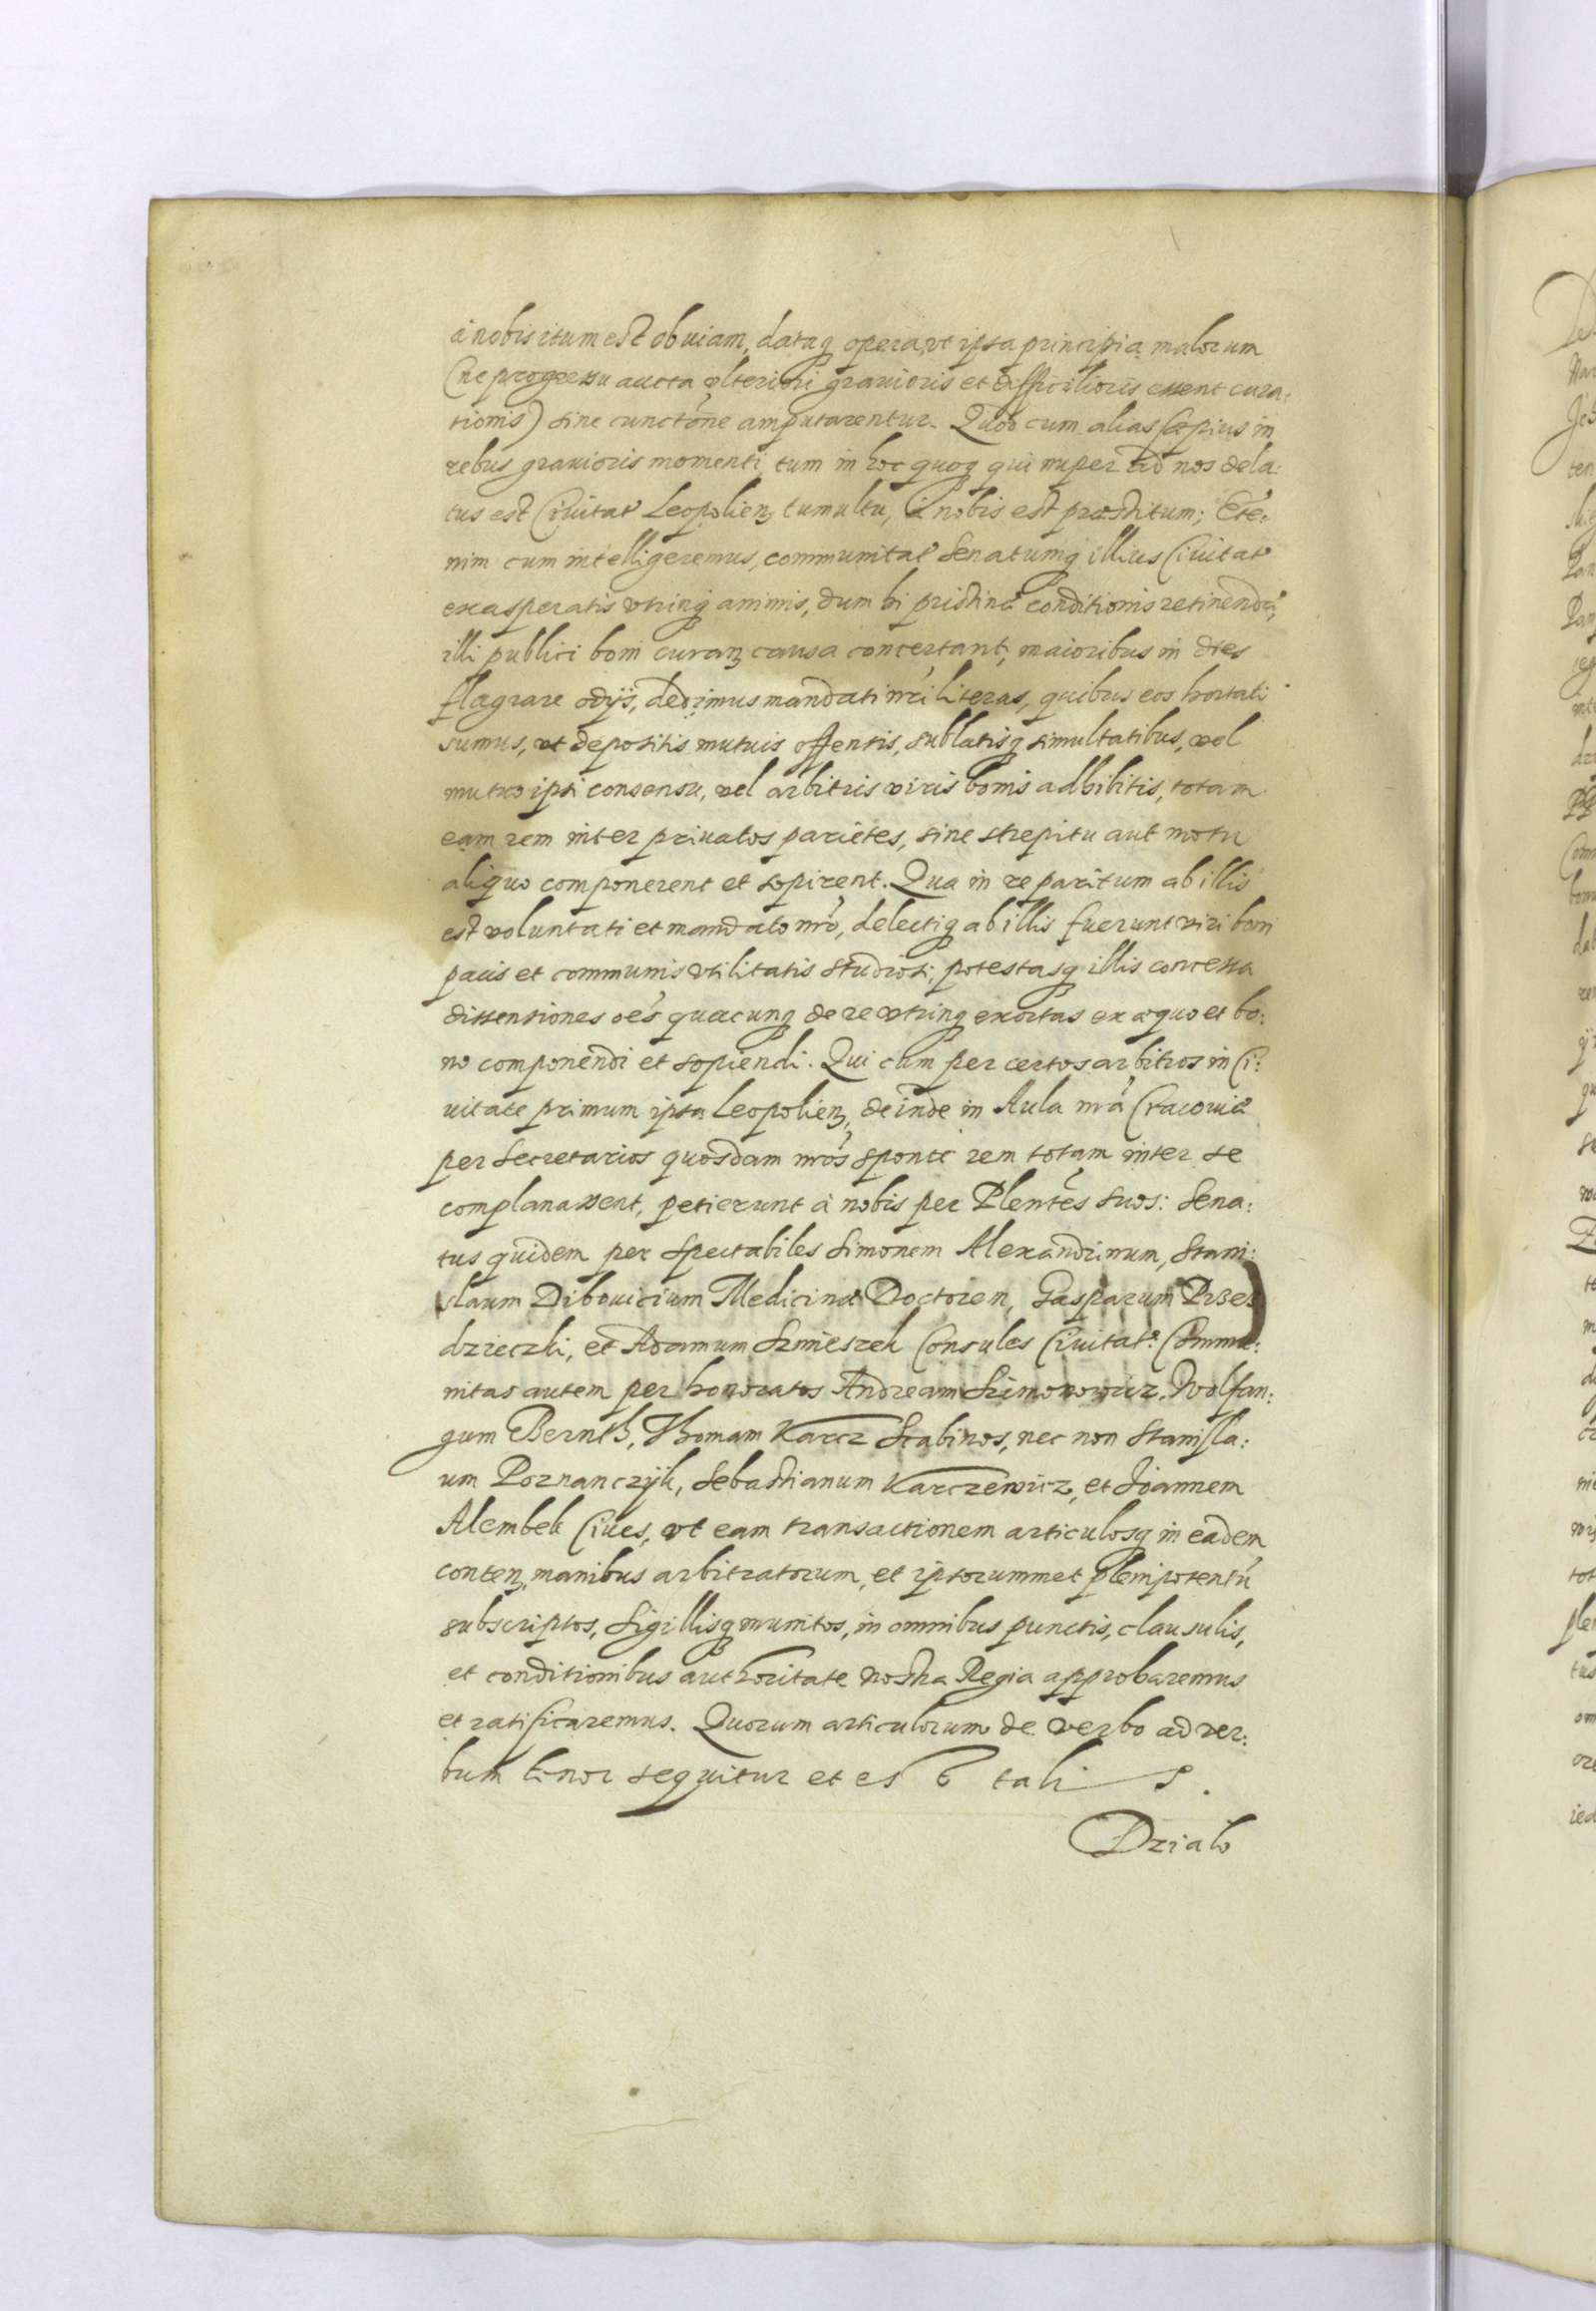 à nobis itum est obuiam, dataq opera, vt ipsa principia malorum
(ne progressu aucta vlteriori grauioris et difficilioris essent cura:
tionis) sine cunctõne amputarentur. Quod cum alias sæpius in
rebus grauioris momenti, tum in hoc quoq qui nuper ad nos dela:
tus est Ciuitat Leopolien tumultu, à nobis est præstitum; Ete:
nim cum intelligeremus, communitat Senatumq illius Ciuitat
exasperatis vtrinq animis, dum hi pristinæ conditionis retinendæ,
illi publici boni curan causa concertant, maioribus in dies
flagrare odijs, dedimus mandati nri literas, quibus eos hortati
sumus, vt depositis mutuis offensis, sublatisq simultatibus, vel
mutuo ipsi consensu, vel arbitris viris bonis adhibitis, totam
eam rem inter priuatos parietes, sine strepitu aut motu
aliquo componerent et sopirent. Qua in re paritum ab illis
est voluntati et mandato nrõ, delectiq ab illis fuerunt viri boni
pacis et communis vtilitatis studiosi, potestasq illis concessa
dissensiones oẽs quacunq de re vtrinq exortas ex æquo et bo:
no componendi et sopiendi. Qui cum per certos arbitros in Ci:
uitate primum ipsa Leopolien, deinde in Aula nrã Cracouiæ
per Secretarios quosdam nrõs sponte rem totam inter se
complanassent, petierunt à nobis per Plentẽs suos: Sena:
tus quidem per Spectabiles Simonem Alexandrinum, Stani:
slaum Dibouicium Medicinæ Doctorem, Gasparum Przes
dzieczki, et Adamum Szmieszek Consules Ciuitat: Commu:
nitas autem per honoratos Andream Szimonowicz, Wolfan:
gum Bernth, Thomam Karcz Scabinos, nec non Stanisla:
um Poznanczÿk, Sebastianum Karczewicz, et Joannem
Alembek Ciues, vt eam transactionem articulosq in eadem
conten, manibus arbitratorum, et ipsorummet plenipotentũ
subscriptos, Sigillisq munitos, in omnibus punctis, clausulis,
et conditionibus authoritate nostra Regia approbaremus
et ratificaremus. Quorum articulorum de verbo ad ver:
bum tenor sequitur et est talis.
Dzialo